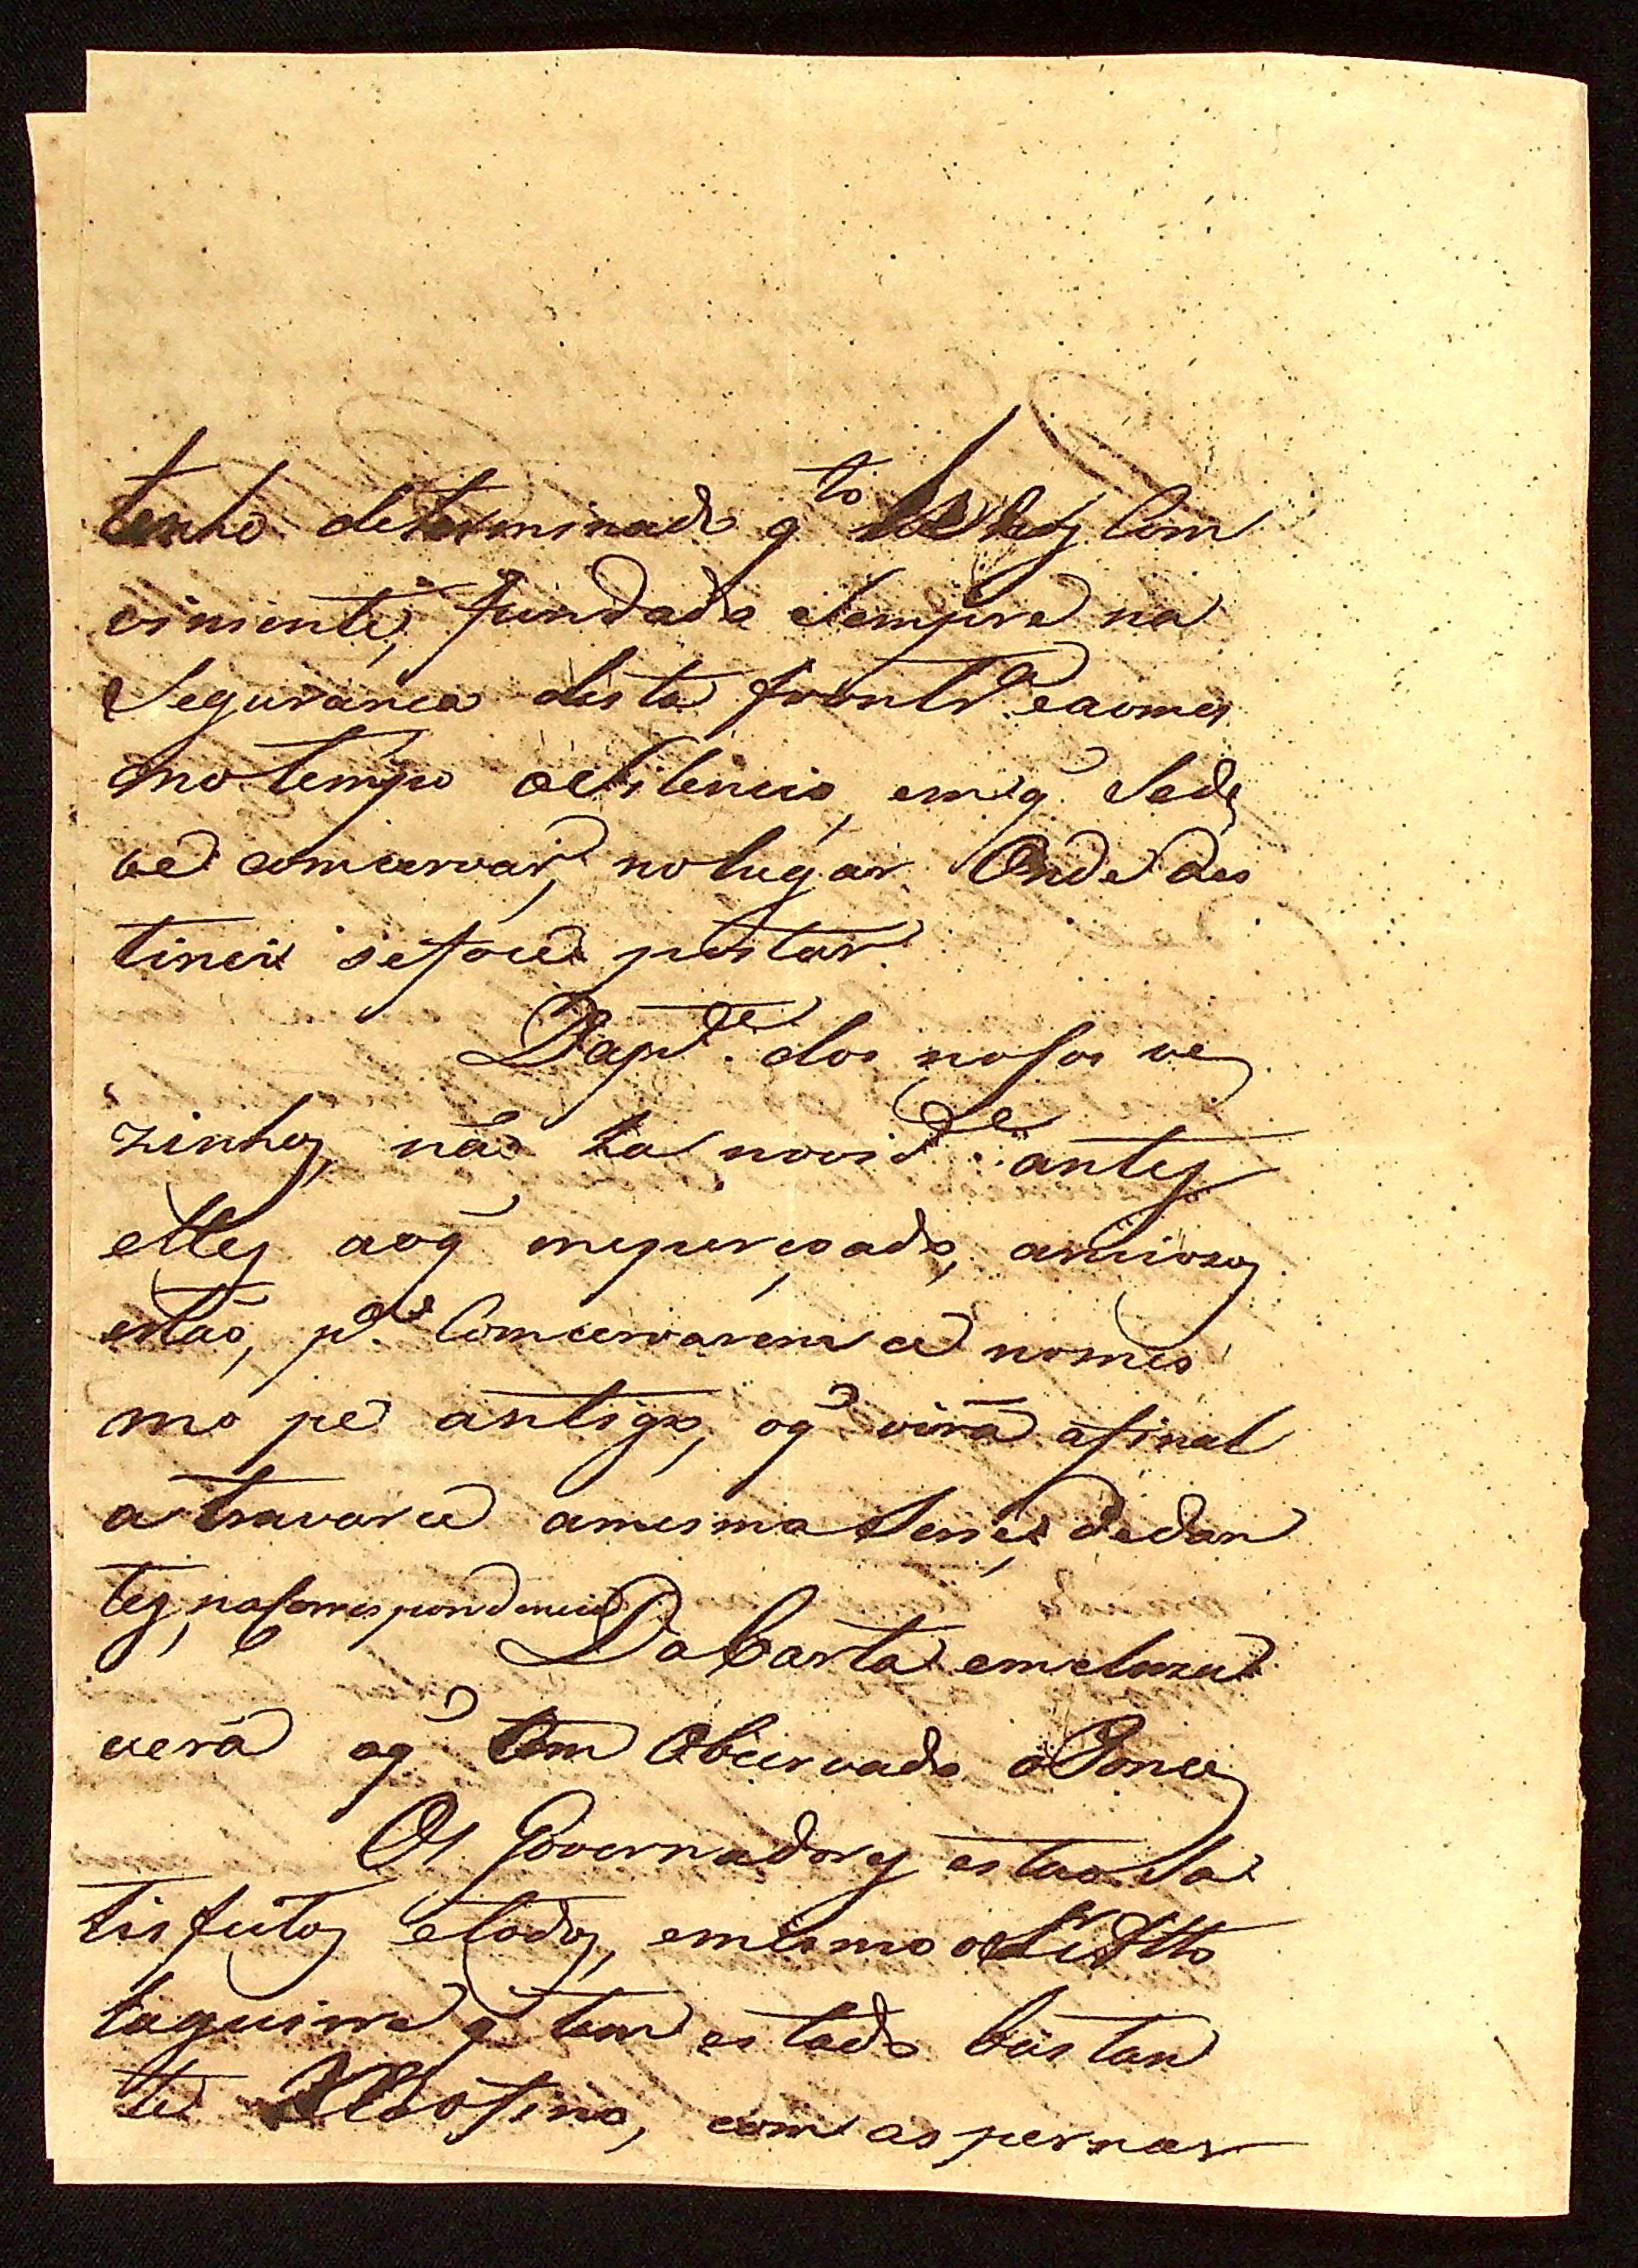 tenho determinado q.to he hoj Com
viniente, fundada Sempre na
Seguranca desta frontr.a eaomes
mo tempo oSilencio, em q̃ Sede
ve comcervar, nolugar Onde des
tinei sefoce postar.
Dap.te dos nosos ve
zinhos, não ha novid.e antes
elles aoq̃ mepersoado, anciozos
estão, p.a Comcervarem ce nomes
mo pe antigo, oq̃ virá afinal
atravarce amesma
tes, naCorrespondencia
DaCarta emcluza
verá oq̃ tem Obcervado oPonce
Os Governadores estão Sa
tisfeitos etodos, emesmo o
laguirre q̃ tem estado bastan
te, com as pernas